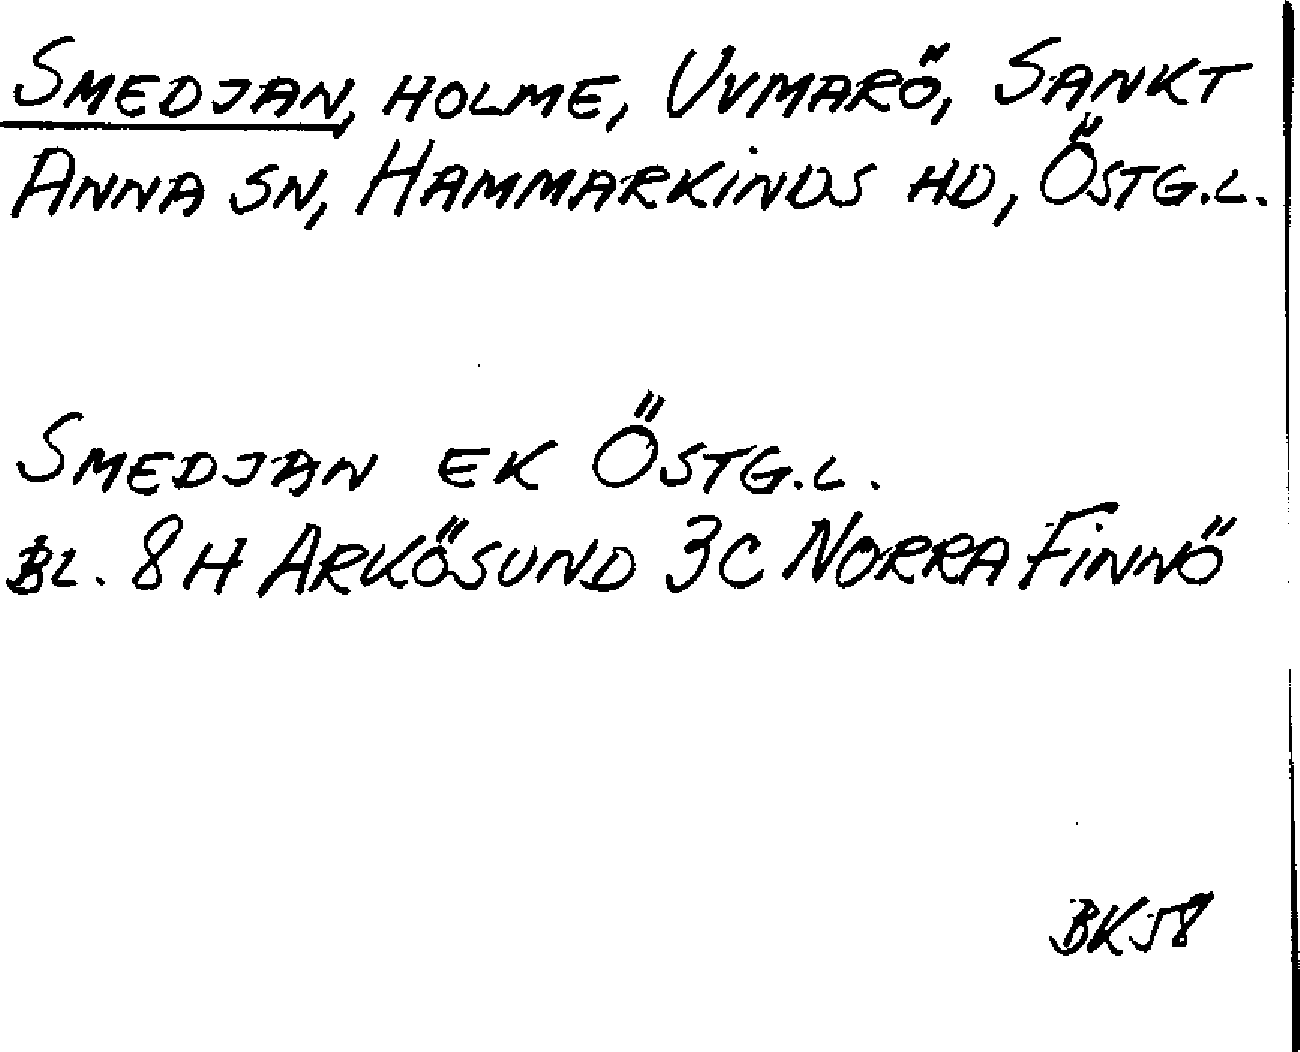 SMEDJAN, HOLME, UVMARÖ, SANKT
ANNA SN, HAMMARKINDS HD, ÖSTG.L.
SMEDJAN EK ÖSTG.L.
BL. 8H ARKÖSUND 3C NORRA FINNÖ
BK58